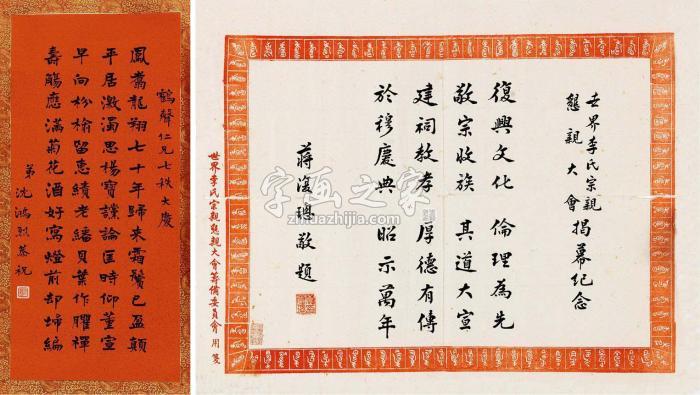 鶴聲仁兄七秩大慶
鳳翥龍翔七十年歸來霜鬢已盈顛
平居激濁思楊寶讜論匡時仰董宣
早向枌榆留惠績老繙貝葉作臞禪
壽觴應滿菊花酒好寫燈前却埽編
弟沈鴻烈恭祝
世界李氏宗親
懇親大會揭幕紀念
復興文化 倫理為先
敬宗收族 其道大宣
建祠教孝 厚德有傳
於穆慶典 昭示萬年
蔣復璁敬題
世界李氏宗親懇親大會籌備委員會用箋
字画之家